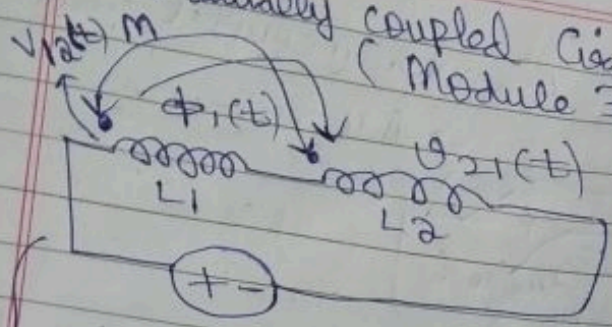 coupled
(Module
V12(t) M
ϕ1(t)
υ21(t)
L1
L2
+ -